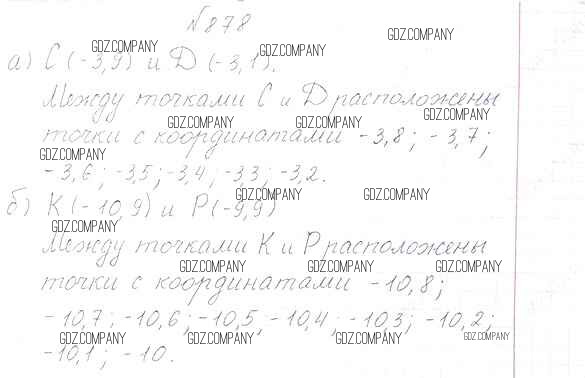 №878
GDZ.COMPANY
GDZ.COMPANY GDZ.COMPANY
а) C (-3,9) и D (-3,1).
Между точками C и D расположены
GDZ.COMPANY GDZ.COMPANY GDZ.COMPANY
точки с координатами -3,8; -3,7;
GDZ.COMPANY
-3,6; -3,5; -3,4; -3,3; -3,2.
GDZ.COMPANY GDZ.COMPANY
б) K (-10,9) и P (-9,9)
GDZ.COMPANY
Между точками K и P расположены
GDZ.COMPANY GDZ.COMPANY GDZ.COMPANY
точки с координатами -10,8;
-10,7; -10,6; -10,5, -10,4; -10,3; -10,2;
GDZ.COMPANY GDZ.COMPANY GDZ.COMPANY GDZ.COMPANY
-10,1; -10.